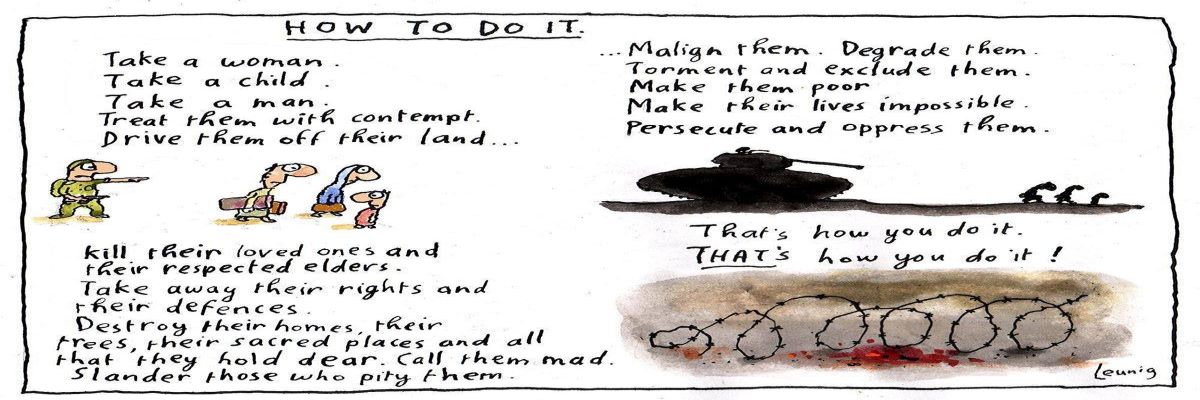 HOW TO DO IT.
Take a woman.
Take a child.
Take a man.
Treat them with contempt.
Drive them off their land...
kill their loved ones and
their respected elders.
Take away their rights and
their defences.
Destroy their homes, their
trees, their sacred places and all
that they hold dear. Call them mad.
Slander those who pity them.
...Malign them. Degrade them.
Torment and exclude them.
Make them poor
Make their lives impossible.
Persecute and oppress them.
That's how you do it.
THAT's how you do it!
Leunig